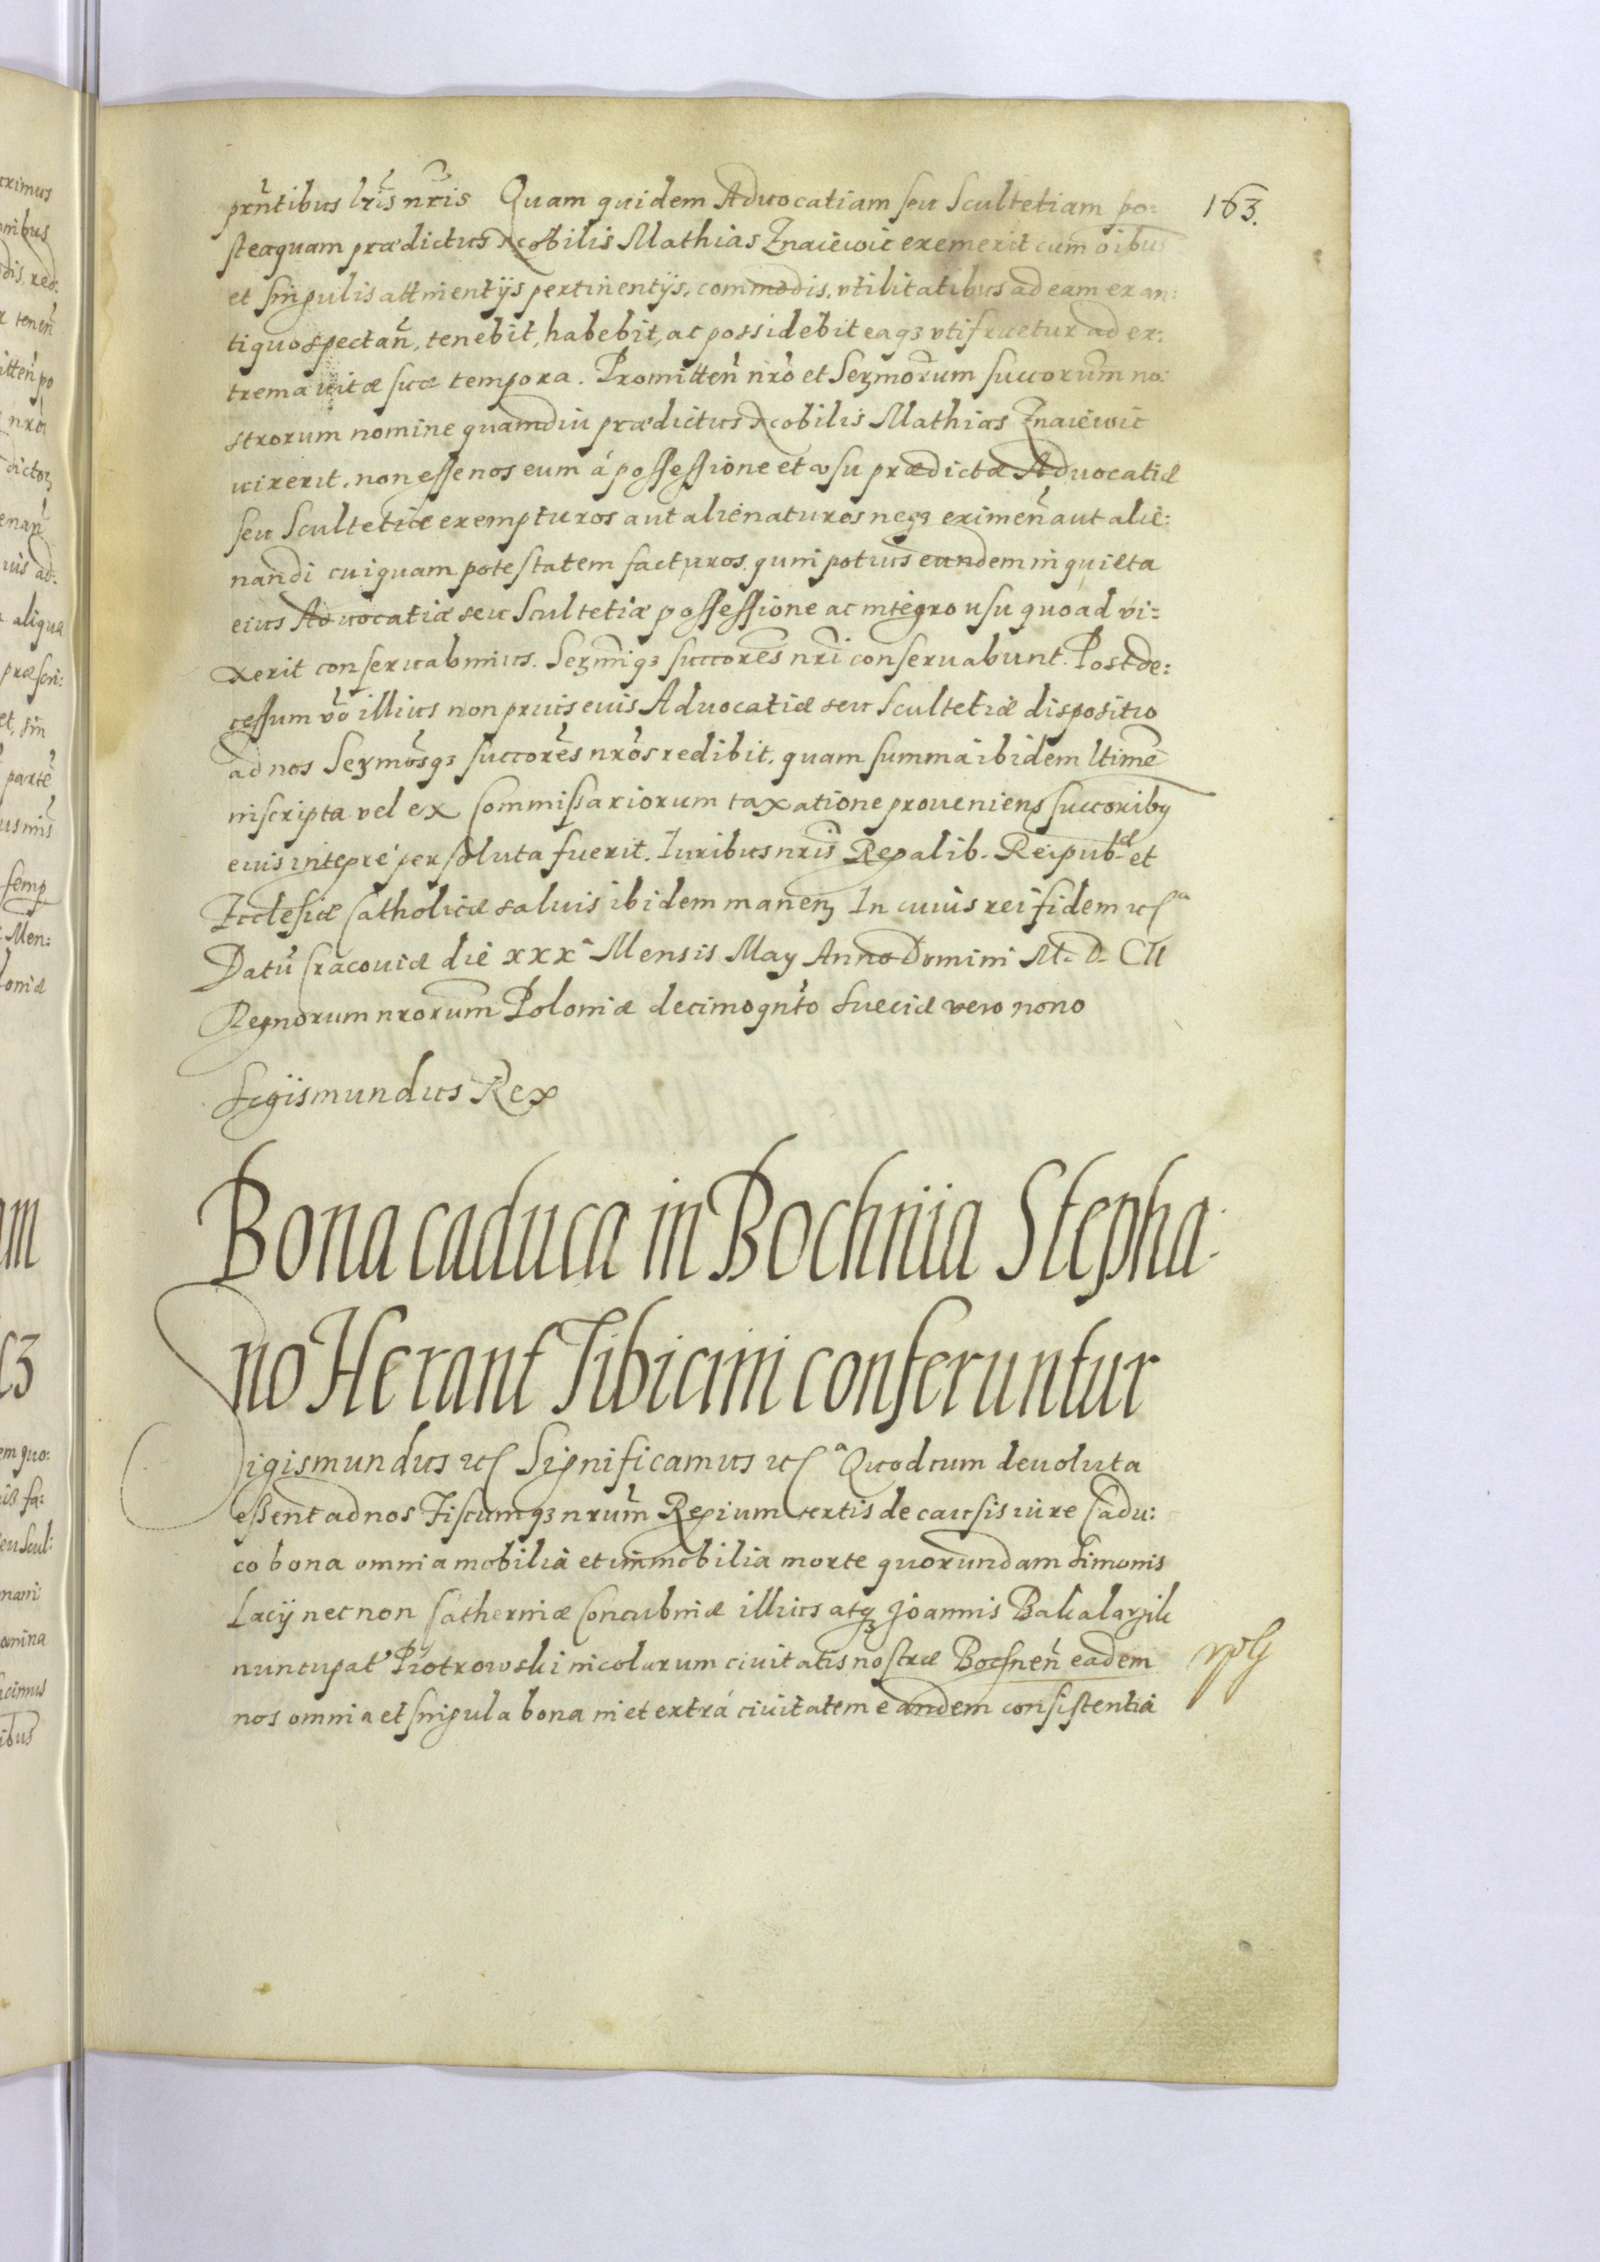 163.
prn̄tibus lr̄is nr̄is Quam quidem Aduocatiam seu Scultetiam po:
steaquam prædictus Nobilis Mathias Znaiewic exemerit cum oībus
et singulis attinentijs pertinentijs, commodis, vtilitatibus ad eam ex an:
tiquo spectan̄, tenebit, habebit, ac possidebit eaqȝ vtifruetur ad ex:
trema vitæ suæ tempora. Promitten̄ nr̄o et Serm̄orum succorum no:
strorum nomine quamdiu prædictus Nobilis Mathias Znaiewic
vixerit, non esse nos eum á possessione et vsu prædictæ Aduocatiæ
seu Scultetiæ exempturos aut alienaturos neqȝ eximen̄ aut alie:
nandi cuiquam potestatem facturos, quin potius eundem in quieta
eius Aduocatiæ seu Scultetiæ possessione ac integro usu quoad vi=
xerit conseruabimus. Serm̄iqȝ succores nr̄i conseruabunt. Post de:
cessum vō illius non prius euis Aduocatiæ seu Scultetiæ dispositio
ad nos Serm̄osqȝ succorēs nr̄os redibit, quam summa ibidem ltimē
inscripta vel ex Commissariorum taxatione proueniens succoribꝫ
euis integrè persoluta fuerit. Iuribus nr̄is Regalib. Reipub. et
Ecclesiæ Catholicæ saluis ibidem manen̄ In cuius rei fidem etc
Datū Cracouiæ die xxx Mensis May Anno Domini M. D. CII
Regnorum nrorum Poloniæ decimoqn̄to Sueciæ vero nono
Sigismundus Rex
Bona caduca in Bochniia Stepha:
no Herant Tibicini conferuntur
Sigismundus etc Significamus etc Quod cum deuoluta
essent ad nos Fiscumqȝ nrum̄ Regium certis de causis iure Cadu:
co bona omnia mobilia et immobilia morte quorundam Simonis
Lacij necnon Catherinæ Concubinæ illius atqȝ Joannis Bakalarzik
nuncupat Piotrowski incolarum ciuitatis nostræ Bochnen̄ eadem
nos omnia et singula bona in et extrá ciuitatem eandem consistentia